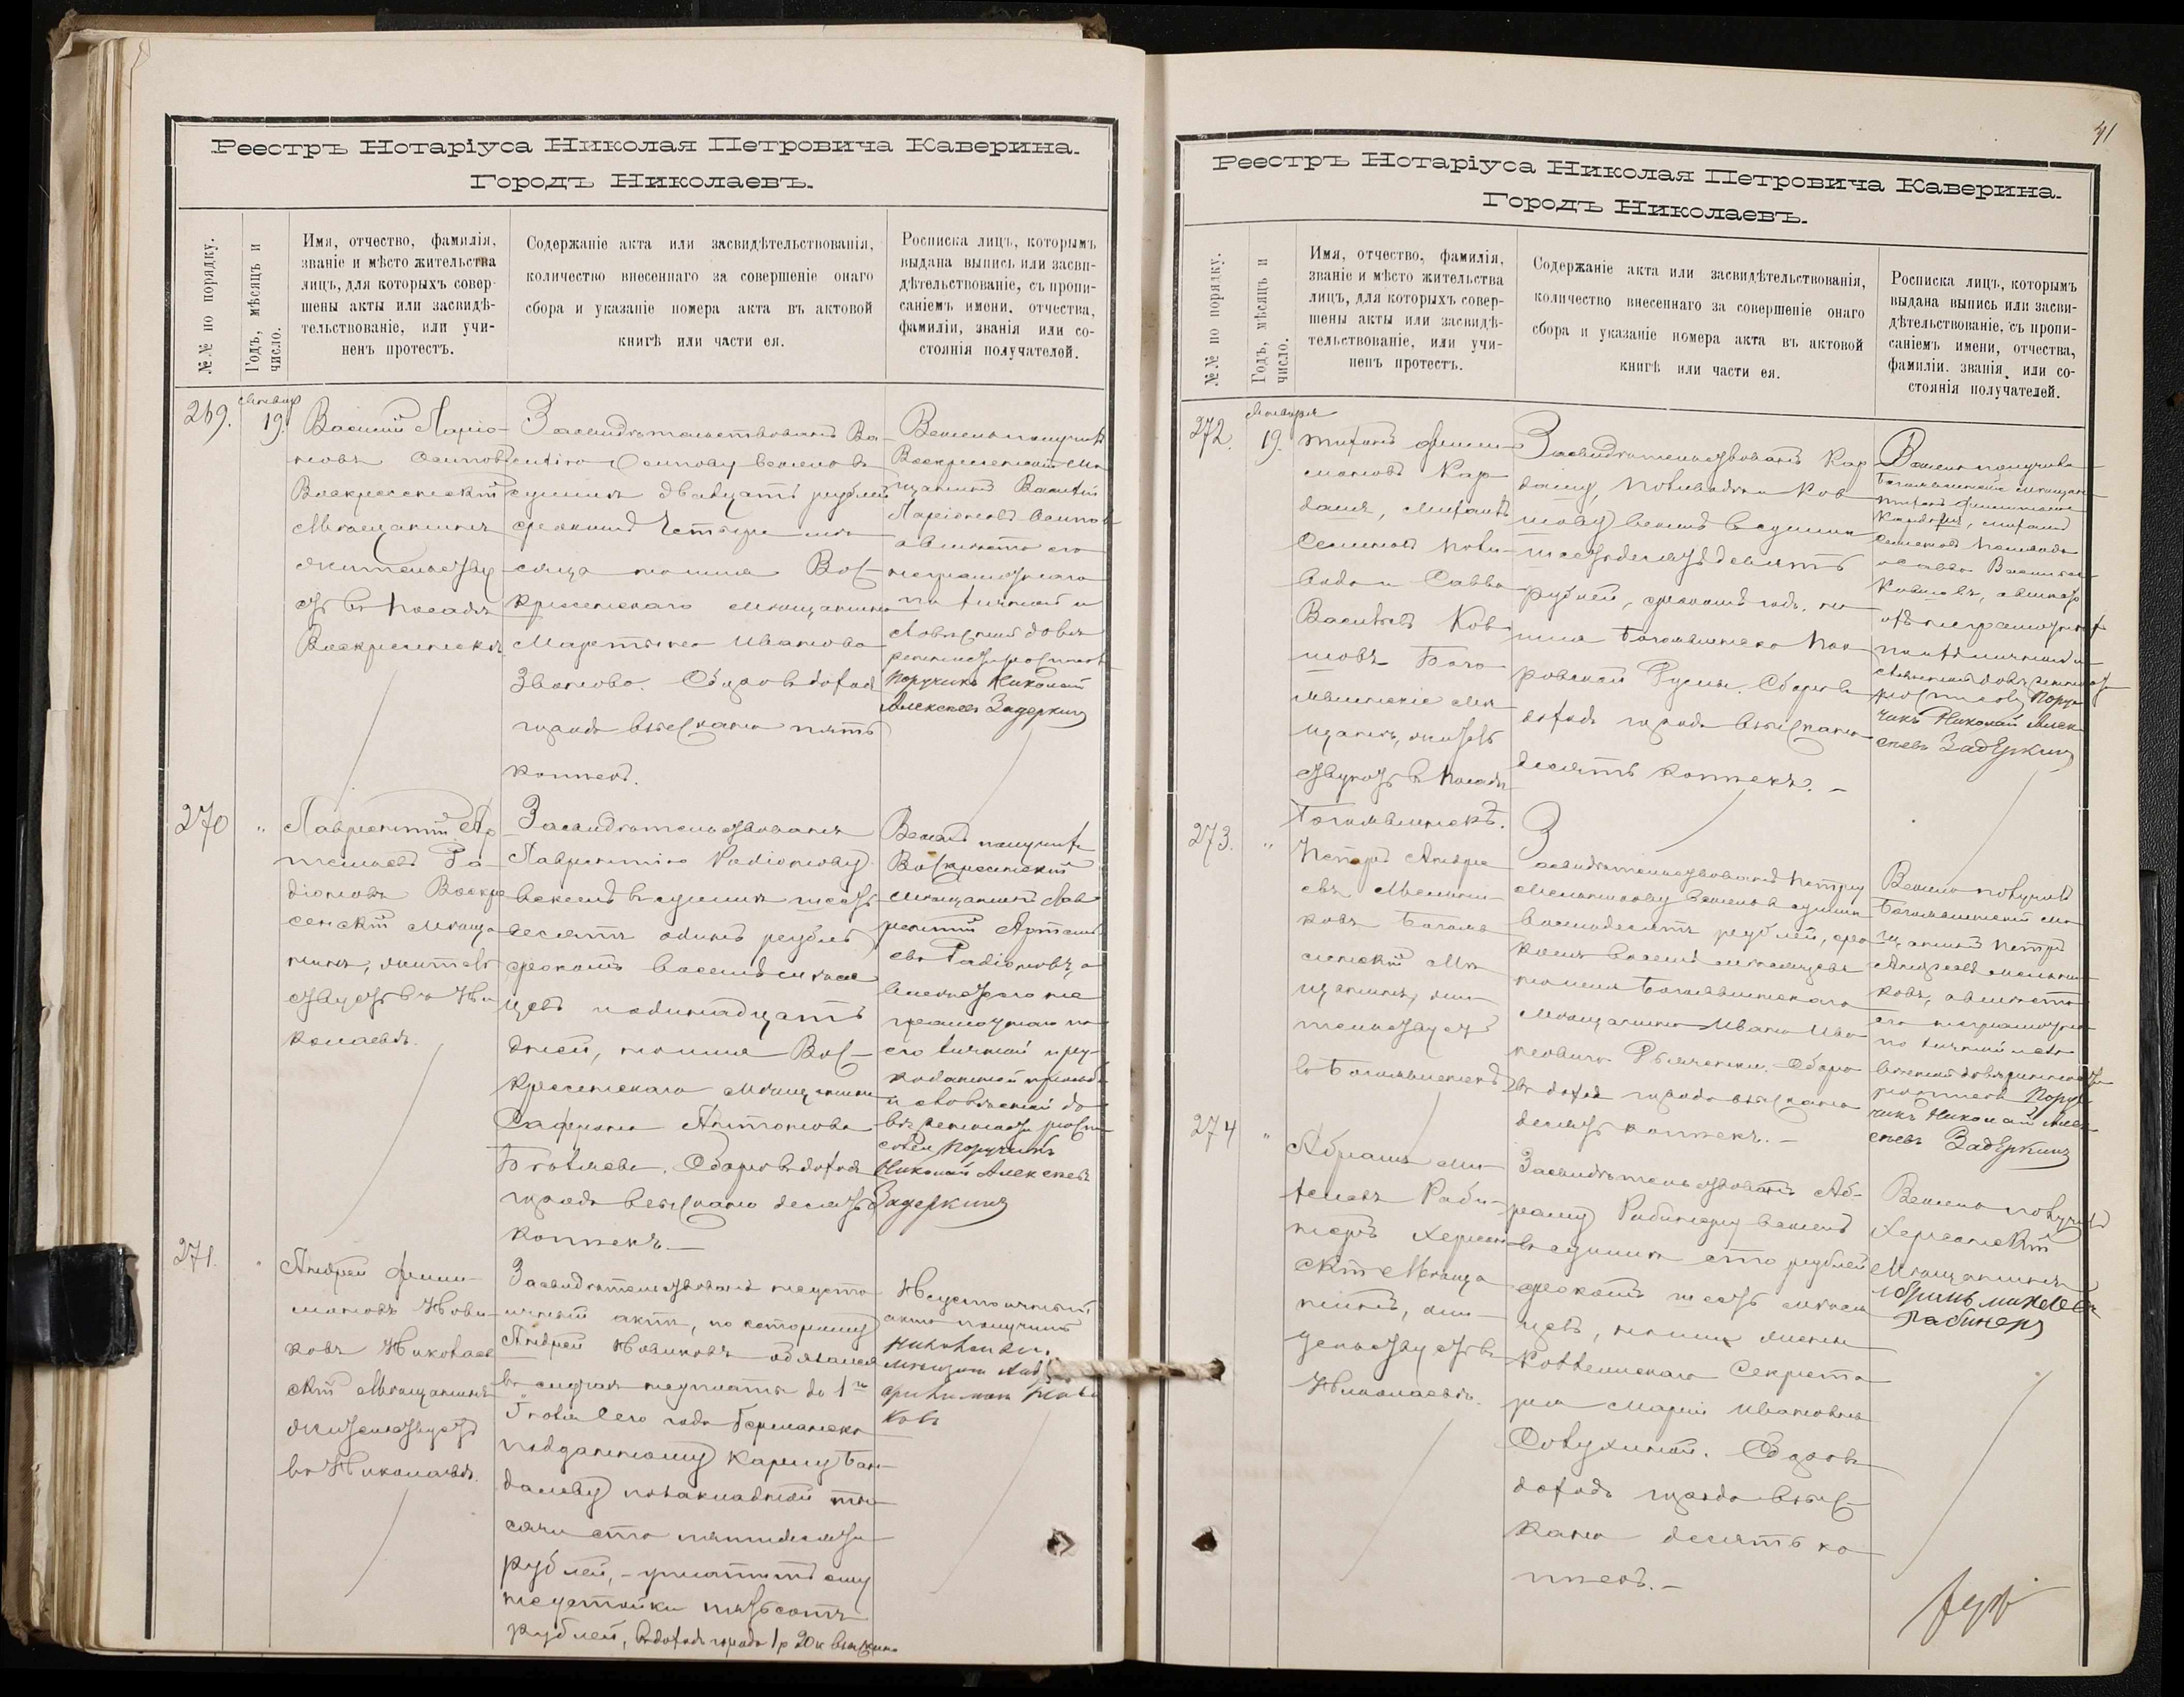 Реестръ Нотаріуса Николая Петровича Каверина.
Городъ Николаевъ.
№№ по порядку.
Годъ, мѣсяцъ и
число.
Имя, отчество, фамилія,
званіе и мѣсто жительства
лицъ, для которыхъ совер-
шены акты или засвидѣ-
тельствованіе, или учи-
ненъ протестъ.
Содержаніе акта или засвидѣтельствованія,
количество внесеннаго за совершеніе онаго
сбора и указаніе номера акта въ актовой
книгѣ или части ея.
Росписка лицъ, которымъ
выдана выпись или засви-
дѣтельствованіе, съ пропи-
саніемъ имени. отчества,
фамиліи, званія или со-
стоянія получателей.
269.
19.
Василій Ларіо-
новъ Осиповъ
Воскресенскій
Мѣщанинъ
жительству
етъ въ посадѣ
Воскресенскѣ
Засвидѣтельствованъ Ва-
силію Осипову вексель въ
суммѣ двадцать рублей
срокомъ четыре мѣ-
сяца на имя Вос-
кресенскаго мѣщанина
Мартына Иванова
Званово. Сборъ въ доходъ
города взыскано пять
копѣекъ.
Вексель получилъ
Воскресенскій мѣ-
щанинъ Василій
Ларіоновъ Осиповъ
а вмѣсто его
неграмотнаго
по личной и
довѣренности росписался
Поручикъ Николай
Алексѣевъ Задеркинъ
270
"
Лаврентій Ар
темьевъ Ра-
діоновъ Воскре
сенскій мѣща
нинъ, житель
ствуетъ въ Ни-
колаевѣ.
Засвидѣтельствованъ
Лаврентію Радіонову
вексель въ суммѣ шесть
десятъ одинъ рубль
срокомъ восемь мѣся
цевъ и одинадцать
дней, на имя Вос-
кресенскаго мѣщанина
Сафрона Антонова
Сборъ въ доходъ
города взыскано десять
копѣекъ.—
Вексель получилъ
Воскресенскій
мѣщанинъ Лав
рентій Артемь
евъ Радіоновъ, а
вмѣсто его не
грамотнаго по
его личной
просьбѣ
росписался
Поручикъ
Николай Алексѣевъ
Задеркинъ
271.
Андрей Фили-
моновъ Нови-
ковъ Николаев
скій Мѣщанинъ
жительствуетъ
въ Николаевѣ.
Засвидѣтельствованъ неусто
ичный актъ, по которому
Андрей Новиковъ обязался
въ случаѣ неуплаты до 1го
Іюля сего года Германско
подданному Карлу Бан-
далеву
сячи сто пятьдесятъ
рублей, — уплатить ему
неустойки пятьсотъ
рублей, въ доходъ города 1р 20к взыскано
Неустоичный
актъ получилъ
мѣщанин Анд
Нови
ковъ
41
Реестръ Нотаріуса Николая Петровича Каверина.
Городъ Николаевъ.
№№ по порядку.
Годъ, мѣсяцъ и
число.
Имя, отчество, фамилія,
званіе и мѣсто жительства
лицъ, для которыхъ совер-
шены акты или засвидѣ-
тельствованіе, или учи-
ненъ протестъ.
Содержаніе акта или засвидѣтельствованія,
количество внесеннаго за совершеніе онаго
сбора и указаніе номера акта въ актовой
книгѣ или части ея.
Росписка лицъ, которымъ
выдана выпись или засви-
дѣтельствованіе, съ пропи-
саніемъ имени, отчества,
фамиліи. званія или со-
стоянія получателей.
272.
Января
19.
Тихонъ Фили-
моновъ Кар
Семеновъ
и Савва
Васильевъ Ков
шовъ Бого-
явленскіе мѣ
щане, житель
ствуютъ въ посадѣ
Богоявленскѣ.
Засвидѣтельствованъ Кар
и Ков
шову вексель въ суммѣ
шестьдесятъ девять
рублей, срокомъ годъ, на
имя Богоявленско
Сборъ въ
доходъ города взыскано
десять копѣекъ.—
Вексель получили
Богоявленскіе мѣщане
Тихонъ Филимоновъ
Семеновъ
и Савва Васильевъ
Ковшовъ, а вмѣсто
ихъ неграмотныхъ
росписался Пору-
чикъ Николай Алек
сѣевъ Задеркинъ
273.
"
Петръ Андре
евъ Мельни-
ковъ Богояв
ленскій Мѣ
щанинъ, жи-
тельствуетъ
въ Богоявленскѣ
Засвидѣтельствованъ Петру
Мельникову вексель въ суммѣ
восемьдесятъ рублей, сро
комъ восемь мѣсяцевъ
на имя Богоявленскаго
Мѣщанина Ивана Ива
новича Сборъ
въ доходъ города взыскано
десять копѣекъ.—
Вексель получилъ
Богоявленскій мѣ-
щанинъ Петръ
Андреевъ Мельни-
ковъ, а вмѣсто
его неграмотнаго
по личной
росписался Пору-
чикъ Николай Алек-
сѣевъ Задеркинъ
274
"
Абрамъ Ми-
хелевъ Раби-
неръ Херсон
скій Мѣща
нинъ, жи-
тельствуетъ въ
Николаевѣ.
Засвидѣтельствованъ Аб-
раму Рабинеру вексель
въ суммѣ сто рублей
срокомъ шесть мѣся
цевъ, на имя жены
Коллежскаго Секрета
ря Маріи Ивановны
Сборъ въ
доходъ города взыс-
кано десять ко
пѣекъ.—
Вексель получилъ
Херсонскій
Мѣщанинъ
Абрамъ Михелевъ
Рабинеръ